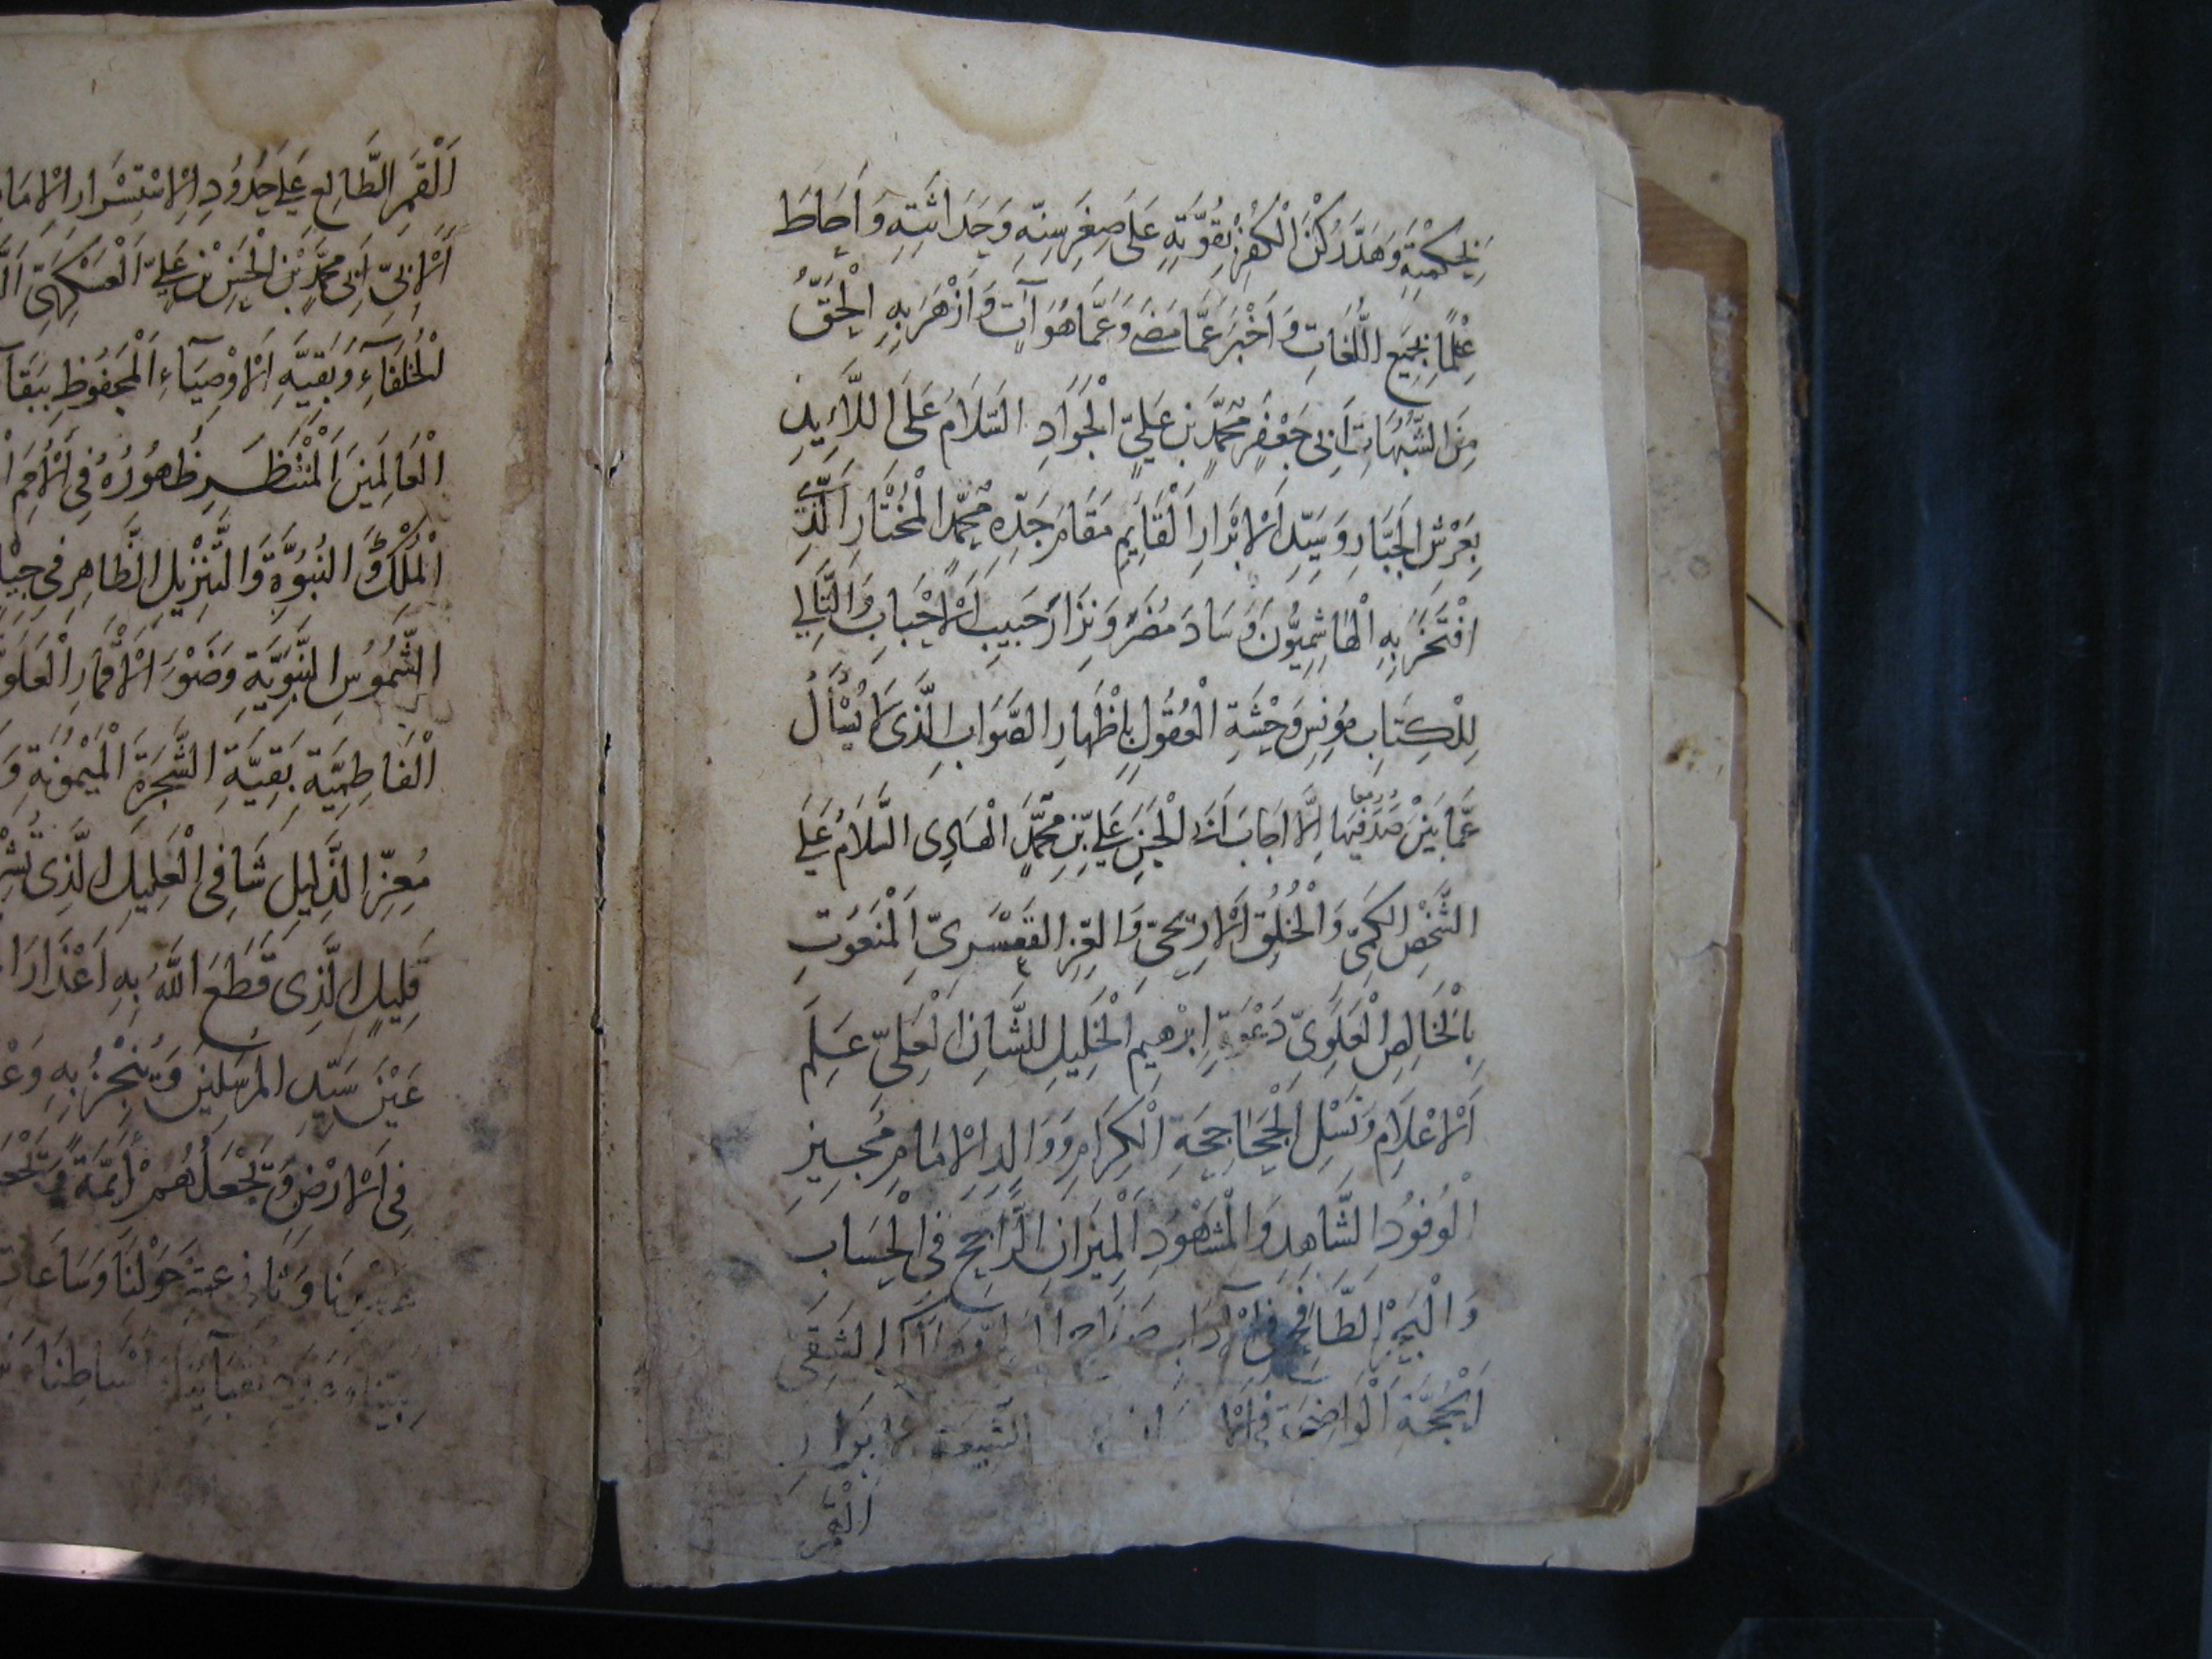 بِحِكْمَتِهِ وَهَدَّ رُكْنَ الْكُفْرِ بِقُوَّتِهِ عَلَى صِغَرِ سِنِّهِ وَحَدَاثَتِهِ وَاَحَاطَ
عِلْمًا بِجَمِيعِ اللُّغَاتِ وَاَخْبَرَ عَمَّا مَضَى وَعَمَّا هُوَ آتٍ وَاَزْهَرَ بِهِ الْحَقُّ
مِنَ الشُّبُهَاتِ اَبِى جَعْفَرٍ مُحَمَّدِ بْنِ عَلِيٍّ الْجَوَادِ السَّلَامُ عَلَى اللَّائِذِ
بِعَرْشِ الْجَبَّارِ وَسَيِّدِ الْاَبْرَارِ الْقَايِمِ مَقَامَ جَدِّهِ مُحَمَّدٍ الْمُخْتَارِ الَّذِى
افْتَخَرَ بِهِ الْهَاشِمِيُّونَ وَسَادَ مُضَرُ وَنِزَارُ حَبِيبِ الْاَحْبَابِ وَالتَّالِي
لِلْكِتَابِ مُونِسِ وَحْشَةِ الْعُقُولِ بِاِظْهَارِ الصَّوَابِ الَّذِى لَا يُسْأَلُ
عَمَّا بَيْنَ اِلَّا اَجَابَ الْحَسَنِ عَلِيِّ بْنِ مُحَمَّدٍ الْهَادِى السَّلَامُ عَلَى
الشَّخْصِ الْكَمِيِّ وَالْخُلُقِ الْاَرْيَحِيِّ وَالْعِزِّ الْقَعْسَرِيِّ الْمَنْعُوتِ
بِالْخَالِصِ الْعَلَوِيِّ دَعْوَةِ اِبْرٰهِيمَ الْخَلِيلِ لِلشَّانِ الْعَلِيِّ عَلَمِ
الْاَعْلَامِ وَنَسْلِ الْجَحَاجِحَةِ الْكِرَامِ وَوَالِدِ الْاِمَامِ مُجِيزِ
الْوُفُودِ الشَّاهِدِ وَالْمَشْهُودِ الْمِيزَانِ الرَّاجِحِ فِى الْحِسَابِ
وَالْبَحْرِ الطَّافِحِ فِى الشَّقِى
الْحُجَّةِ الْوَاضِحَةِ الشِّيعَةِ
الْقَمَرِ
اَلْقَمَرِ الطَّالِعِ عَلَى حُدُودِ الْاِسْتِسْرَارِ
اَبِى مُحَمَّدٍ بْنِ الْحَسَنِ بْنِ عَلِيٍّ الْعَسْكَرِيِّ
الْخُلَفَآءِ وَبَقِيَّةِ الْاَوْصِيَآءِ الْمَحْفُوظِ
الْعَالَمِينَ الْمُنْتَظَرِ ظُهُورُهُ فِى الْاُمَمِ
الْمُلْكِ وَالنُّبُوَّةِ وَالتَّنْزِيلِ الظَّاهِرِ فِى
الشُّمُوسِ النَّبَوِيَّةِ وَضَوْرِ الْاَقْمَارِ
الْفَاطِمِيَّةِ بَقِيَّةِ الشَّجَرَةِ الْمَيْمُونَةِ
مُعِزِّ الذَّلِيلِ شَافِى الْعَلِيلِ الَّذِى
قَلِيلٍ الَّذِى قَطَعَ اللّٰهُ بِهِ اَعْذَارَ
عَيْنَ سَيِّدِ الْمُرْسَلِينَ وَيُنْجِزُ بِهِ
فِى الْاَرْضِ وَنَجْعَلَهُمْ اَئِمَّةً
حَوْلَنَا وَسَاعَاتِ